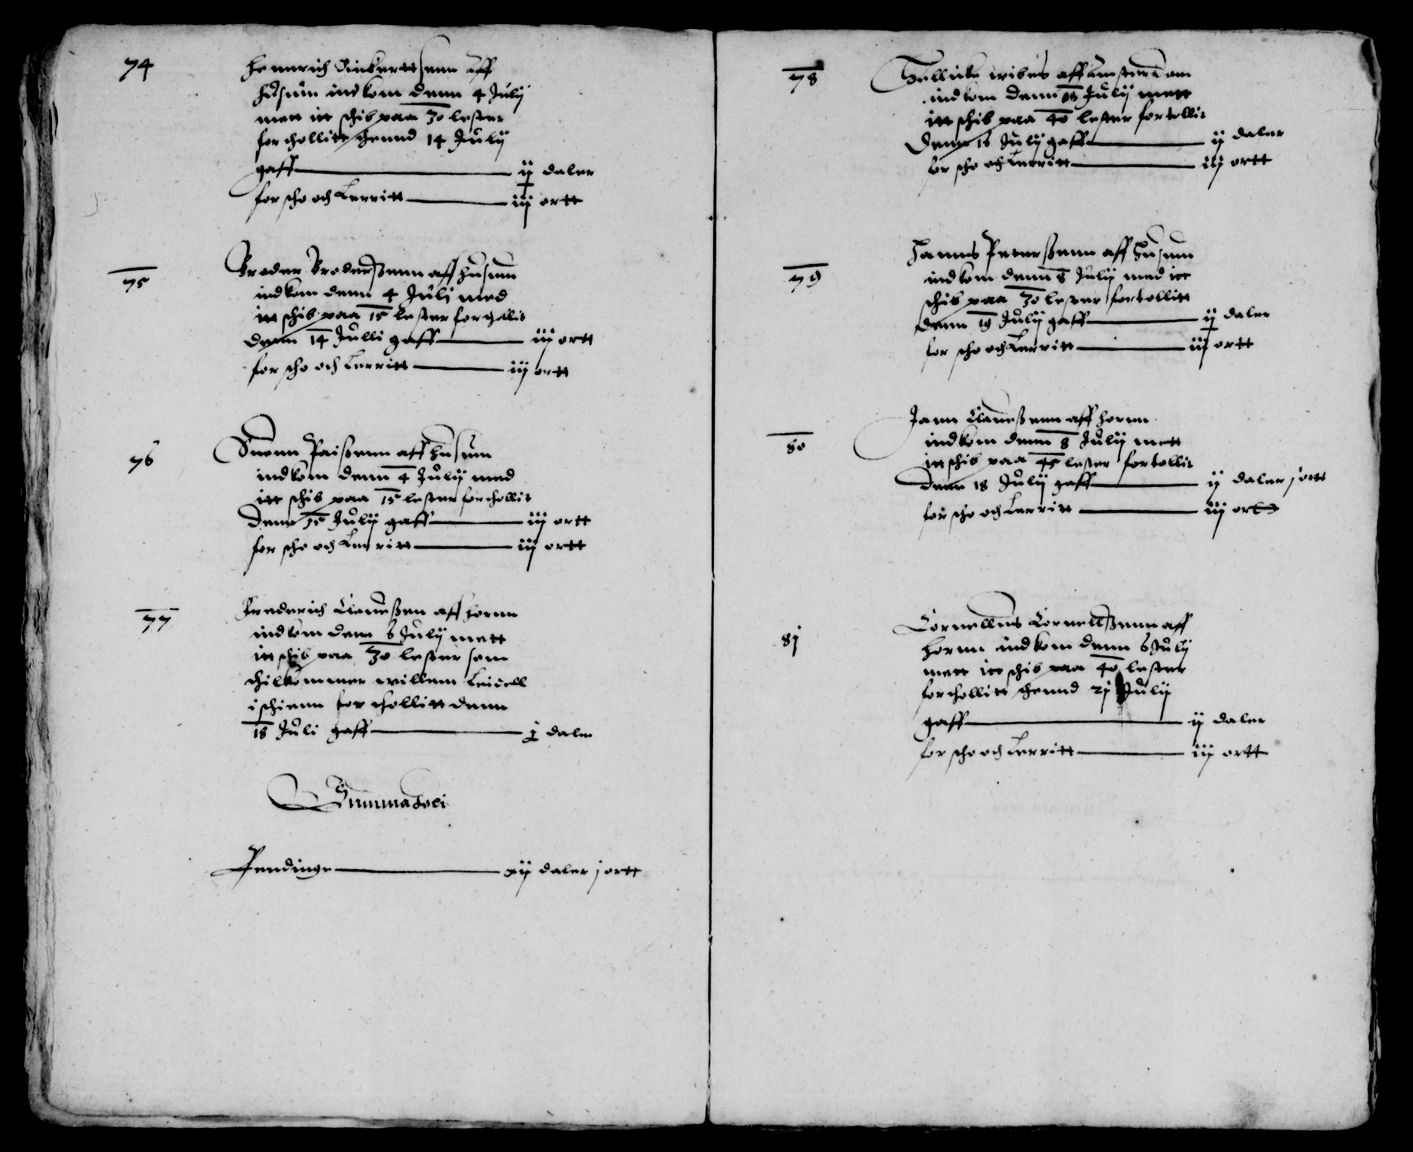 74
Henrich Dirkertsenn aff
Husum indkom denn 4 July
mett itt schib paa 30 lester
forthollitt thennd 14 July
gaff ij daler
for scho och Kerritt iij ortt
75
Broder Brodersenn aff Husum
indkom denn 4 Julij med
itt schib paa 15 lester fortollit
Denn 14 Julli gaff iij ortt
for scho och Kerritt iij ortt
76
Suenn Paisenn aff Husum
indkom denn 4 Julij med
itt schib paa 15 lester forthollit
Denn 15 Julij gaff iij ortt
for scho och Kerritt iij ortt
77
Frederich Clausen aff Hornn
indkom den 6 Julij mett
itt schib paa 30 lester som
thilkommer willem
ischienn forthollitt denn
18 Juli gaff j daler
Summa
Pendinge xij daler j ortt
78
aff Amsterdam
indkom denn 18 Julij mett
itt schib paa 40 lester fortollit
Denn 18 Julij gaff ij daler
for scho och Kerritt iij ortt
79
Hanns Petersenn aff Husum
indkom denn 8 Julij med itt
schib paa 30 lester fortollitt
denn 19 Julij gaff ij daler
for scho och Kerritt iij ortt
80
Jann Clausenn aff Hornn
indkom denn 8 Julij mett
itt schib paa 45 lester fortollit
Denn 18 Julij gaff ij daler j ortt
for scho och Kerritt iij ortt
81
Cornellius Cornellsenn aff
Hornn indkom denn 8 Julij
mett itt schib paa 40 lester
forthollitt thennd 21 Julij
gaff ij daler
for scho och Kerritt iij ortt